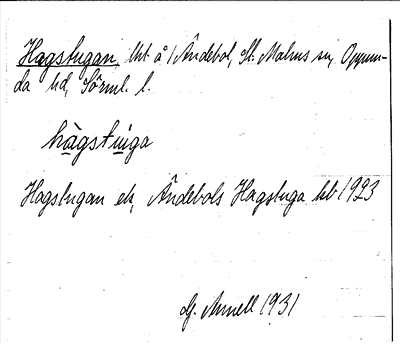 Hagstugan, lht å 1 Ändebol, St. Malms sn, Oppun-
da hd, Sörml. l.
hàgstuiga
Hagstugan ek, Ändebols Hagstuga kb 1923
1931